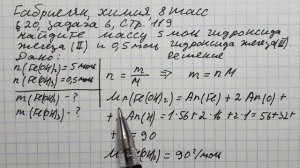 Габриелян, химия, 8 класс
§ 20, задача 6, стр. 119
Найдите массу 5 моль гидроксида
железа (II) и 0,5 моль гидроксида железа (III).
Дано: Решение
n(Fe(OH)₂) = 5 моль
n(Fe(OH)₃) = 0,5 моль
m(Fe(OH)₂) - ?
m(Fe(OH)₃) - ?
n = m/M ⇒ m = nM
Mr(Fe(OH)₂) = Ar(Fe) + 2 Ar(O) +
+ Ar(H) = 1·56 + 2·16 + 2·1 = 56 + 32 +
= 90
(OH)₂) = 90 г/моль